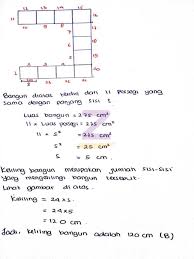 12 13 14 15
11 16
10 17
9 18
8 19
7 20
6 21
5 22
4 3 2 23
1 24
Bangun diatas terdiri dari 11 persegi yang
sama dengan panjang sisi s.
Luas bangun = 275 cm²
11 x Luas persegi = 275 cm²
11 × s² = 275 cm²
s² = 25 cm²
s = 5 cm.
Keliling bangun merupakan jumlah sisi-sisi
yang mengelilingi bangun tersebut.
Lihat gambar di atas.
Keliling = 24 x s
= 24 x 5
= 120 cm
Jadi, keliling bangun adalah 120 cm (B)